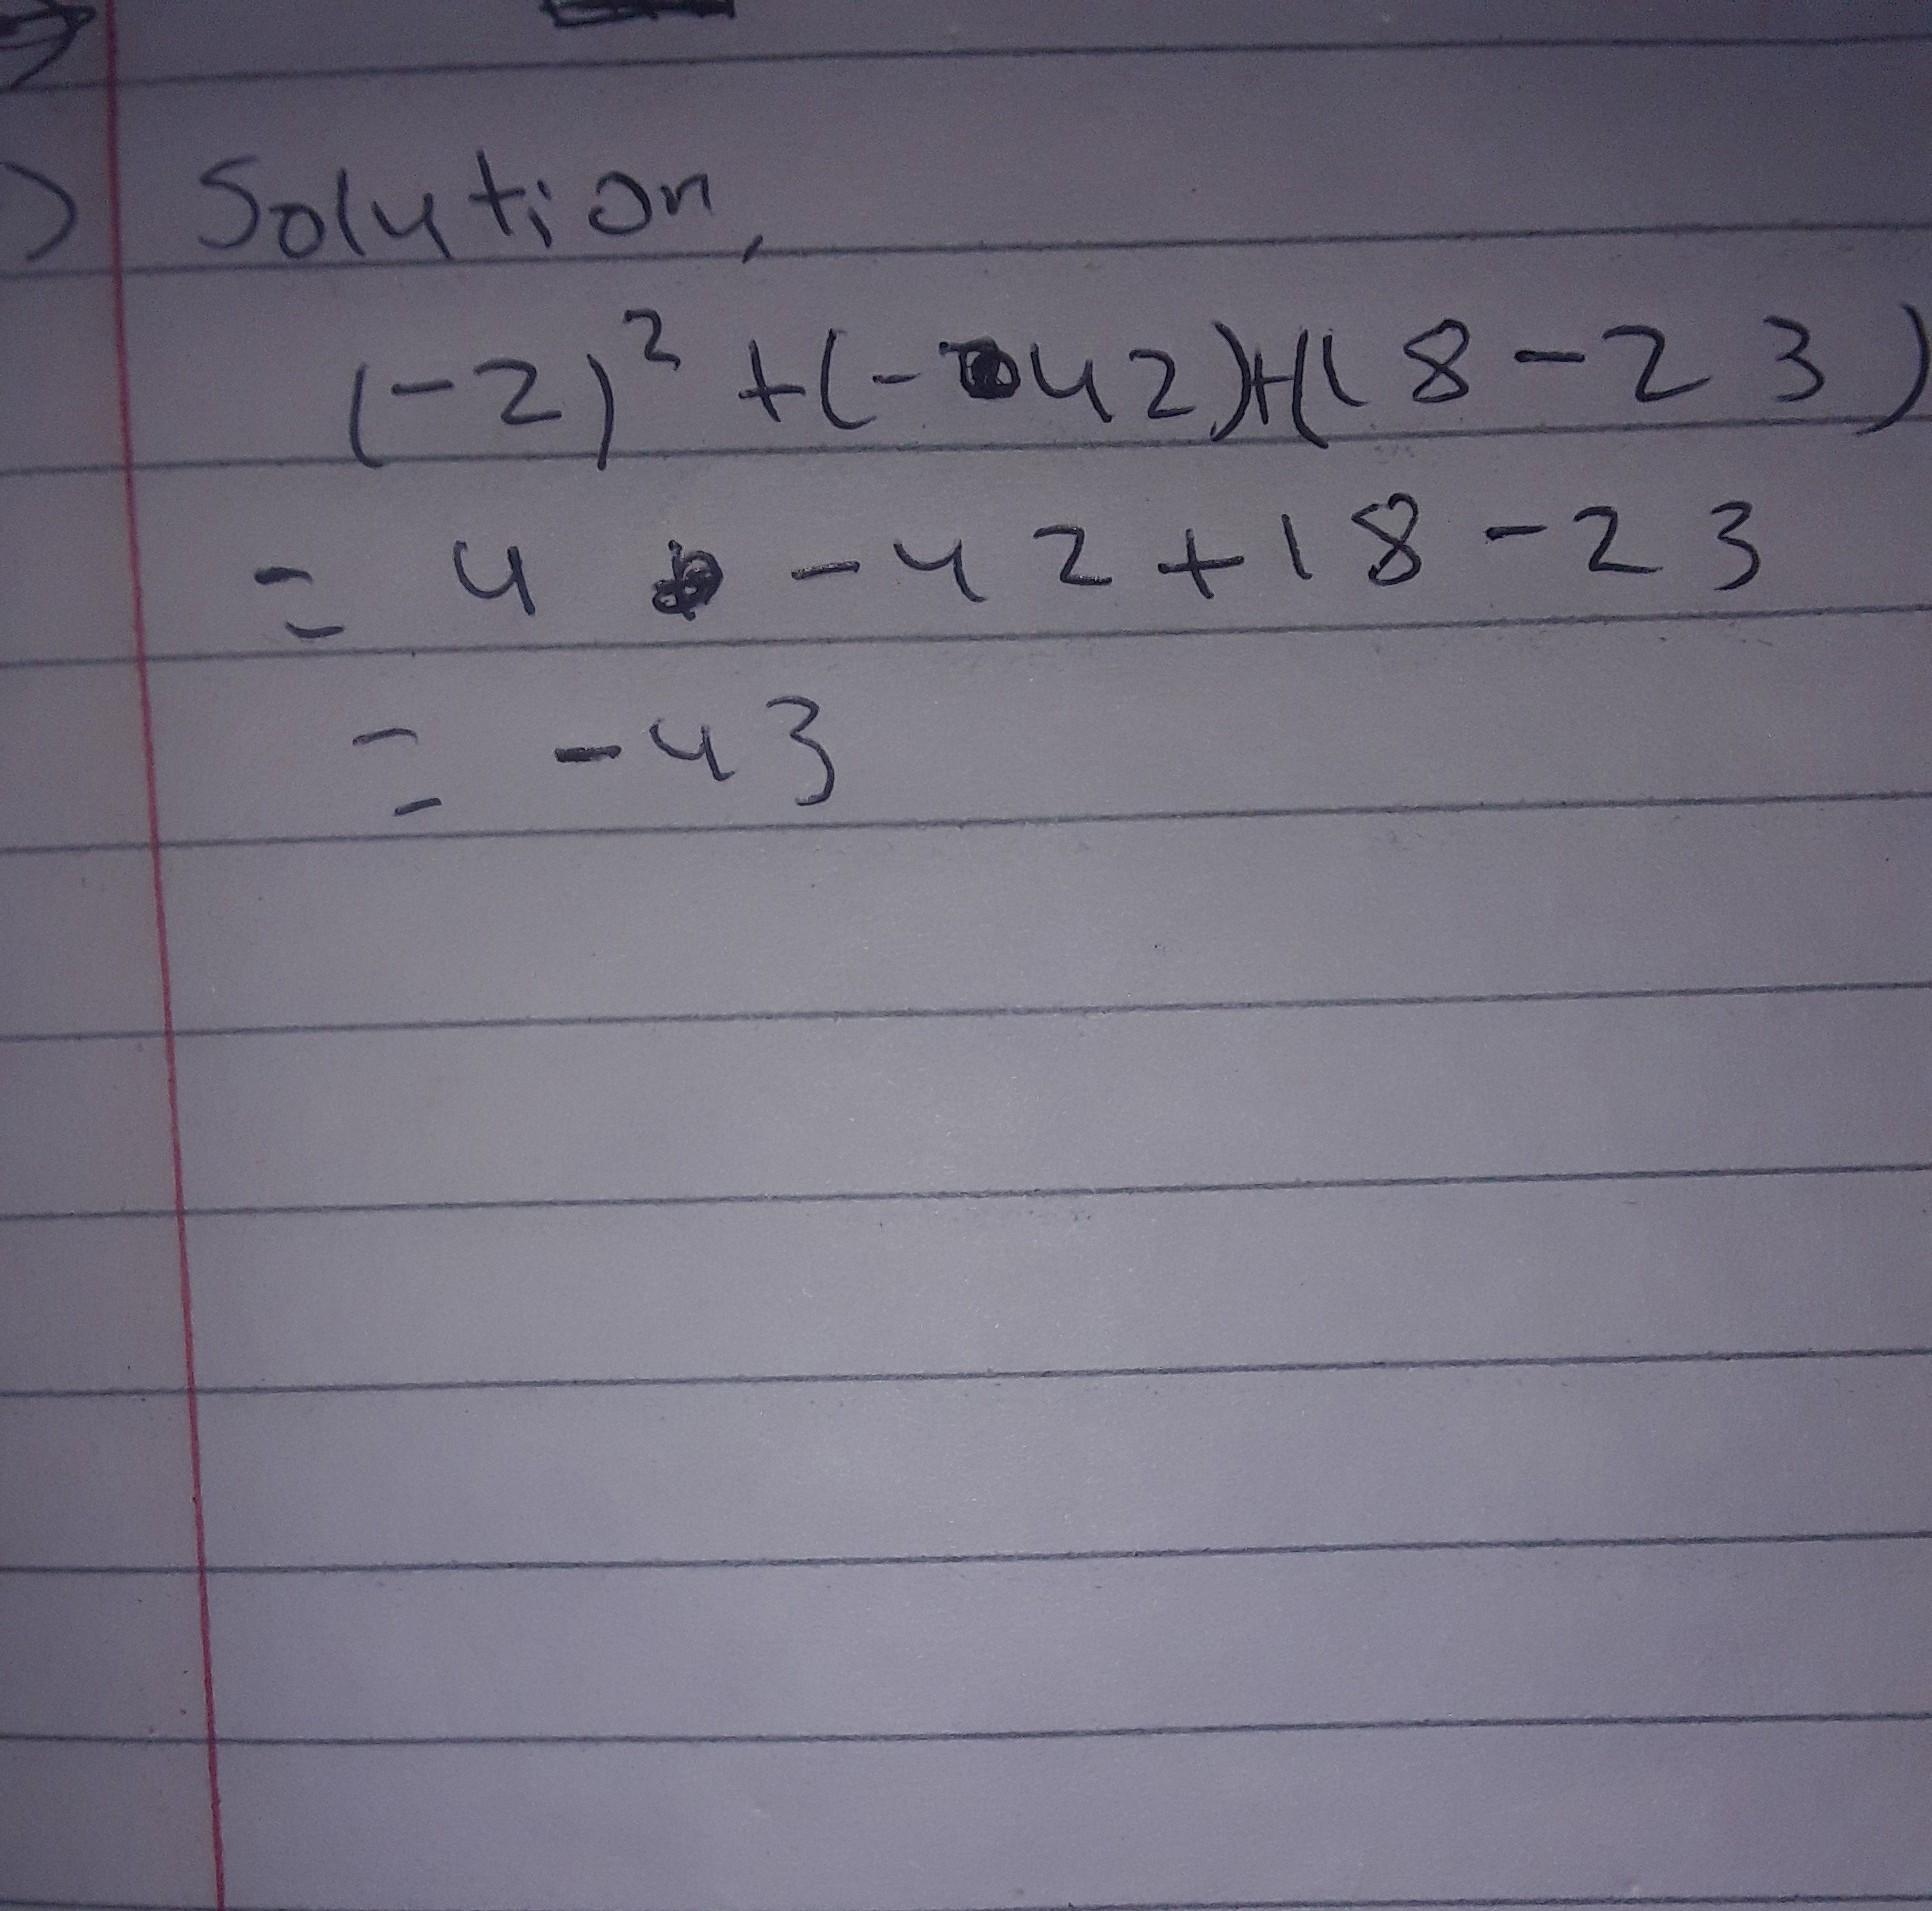 Solution,
(-2)² + (-42)+(18-23)
= 4 -42+18-23
= -43